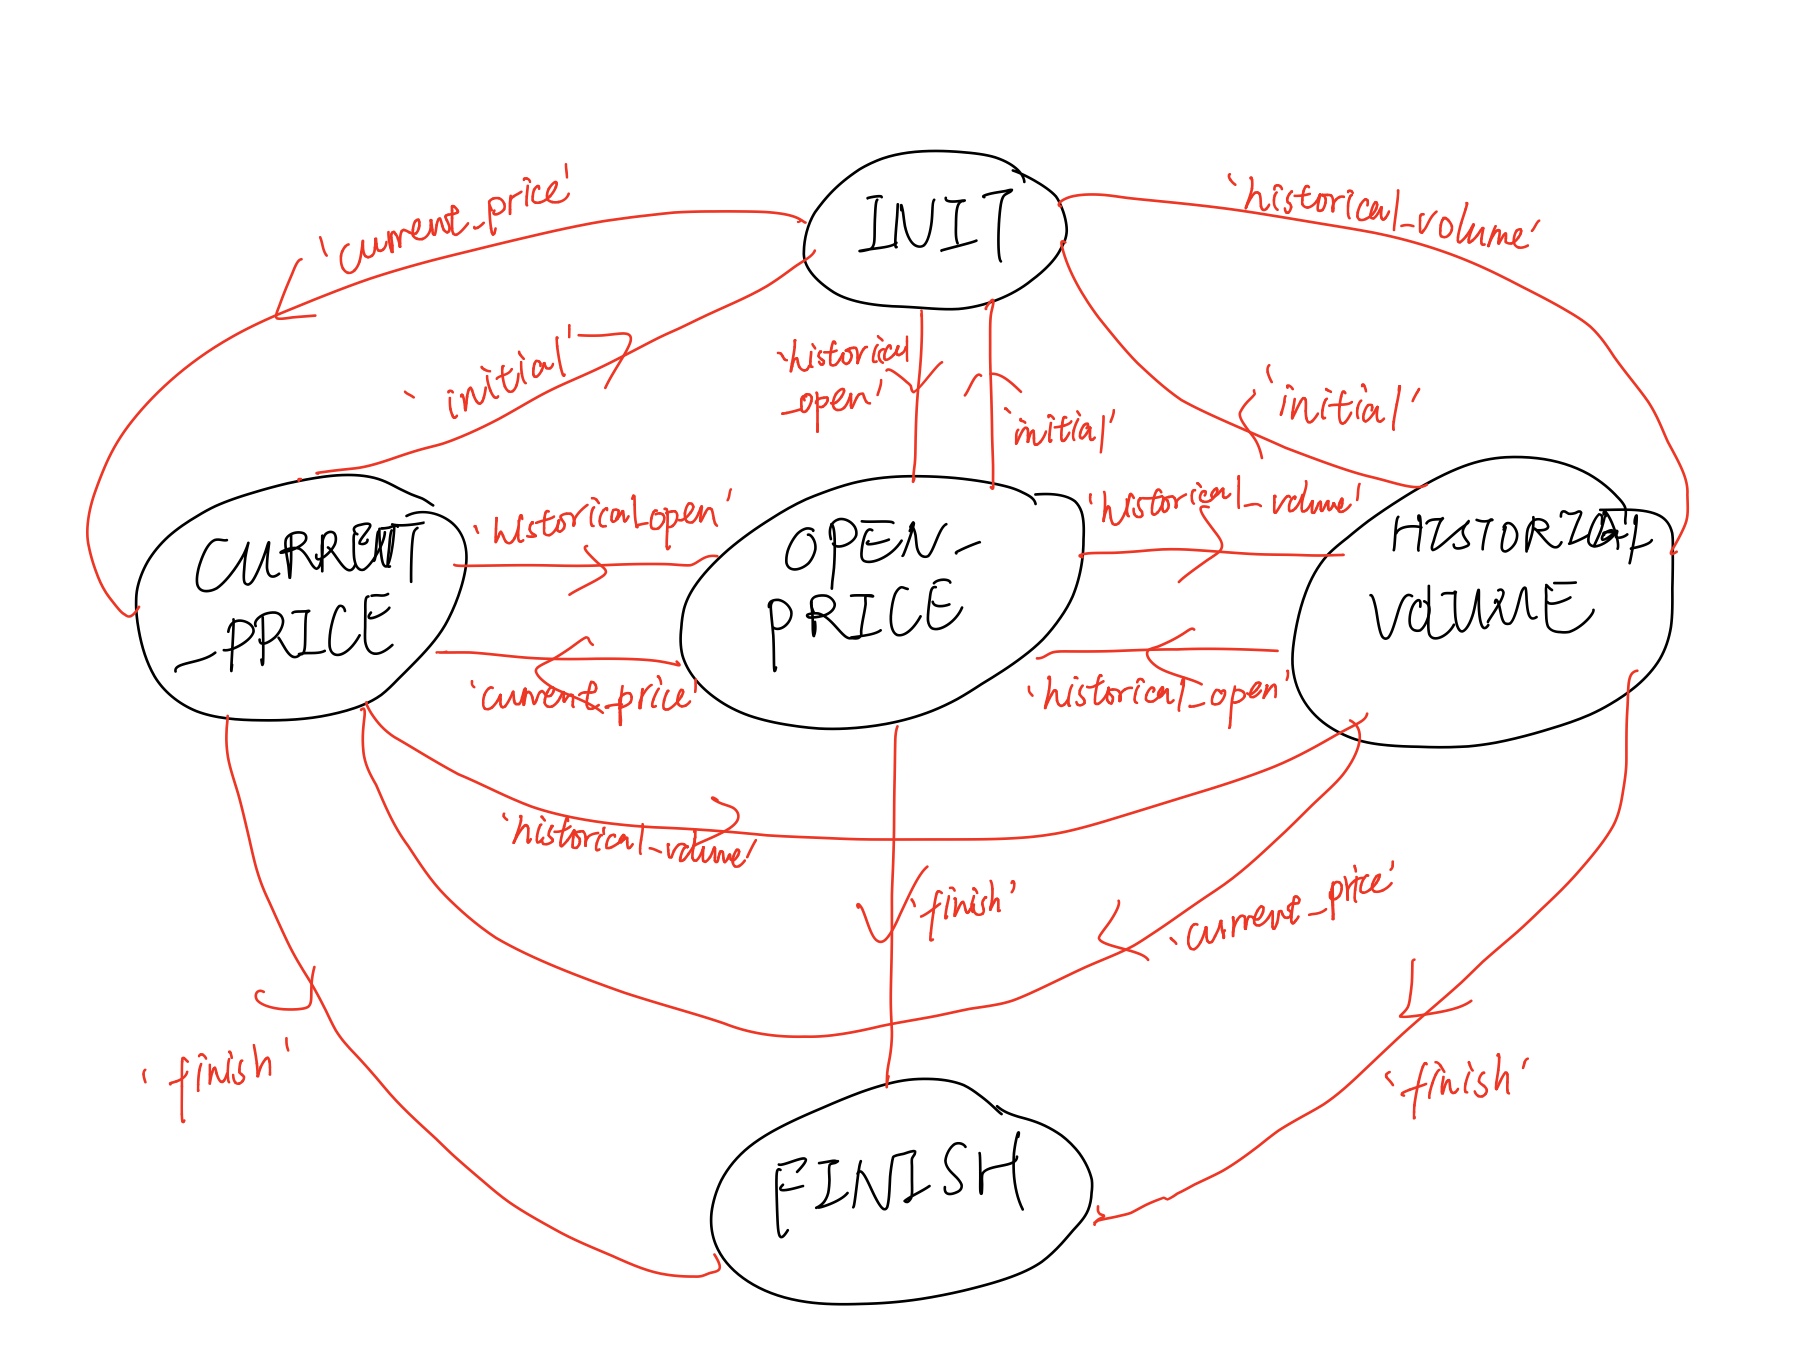 'current_price'
INIT
'historical_volume'
'initial'
'historical
_open'
'initial'
'initial'
CURRENT
_PRICE
'historical_open'
OPEN-
PRICE
'historical_volume'
HISTORICAL
VOLUME
'current_price'
'historical_open'
'historical_volume'
'finish'
'current_price'
'finish'
'finish'
FINISH